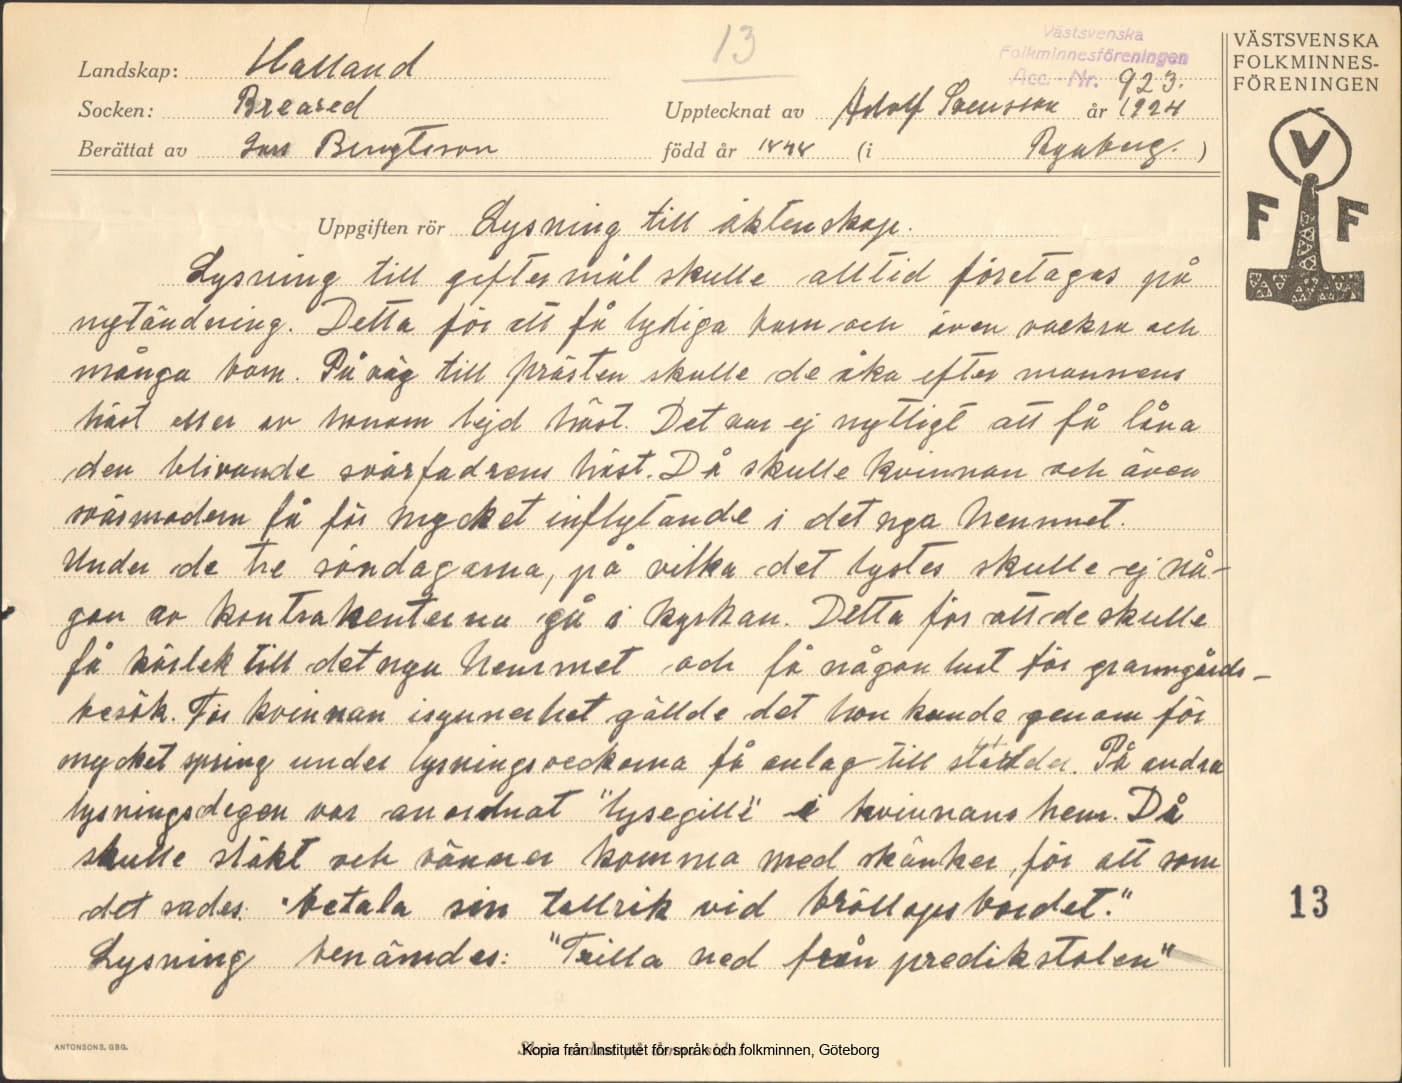 13
Västsvenska
Folkminnesföreningen
Acc. Nr. 923.
Landskap: Halland
Socken: Breared
Upptecknat av Adolf Svensson år 1924
Berättat av Bengtsson
född år 1848 (i )
VÄSTSVENSKA
FOLKMINNES-
FÖRENINGEN
V
F F
Uppgiften rör Lysning till äktenskap.
Lysning till giftermål skulle alltid företagas på
nytändning. Detta för att få lydiga barn och även vackra och
många barn. På väg till prästen skulle de åka efter mannens
häst eller av honom lejd häst. Det var ej nyttigt att få låna
den blivande svärfadrens häst. Då skulle kvinnan och även
svärmodern få för mycket inflytande i det nya hemmet.
Under de tre söndagarna, på vilka det lystes skulle ej nå-
gon av kontrahenterna gå i kyrkan. Detta för att de skulle
få kärlek till det nya hemmet och få någon lust för granngårds-
besök. För kvinnan isynnerhet gällde det hon kunde genom för
mycket spring under lysningsveckorna få anlag till. På andra
lysningsdagen var anordnat "lysegille" i kvinnans hem. Då
skulle släkt och vänner komma med skänker, för att som
det sades: "betala sin tallrik vid bröllopsbordet."
Lysning benämdes: "Trilla ned från predikstolen"
13
ANTONSONS, GBG.
Kopia från Institutet för språk och folkminnen, Göteborg